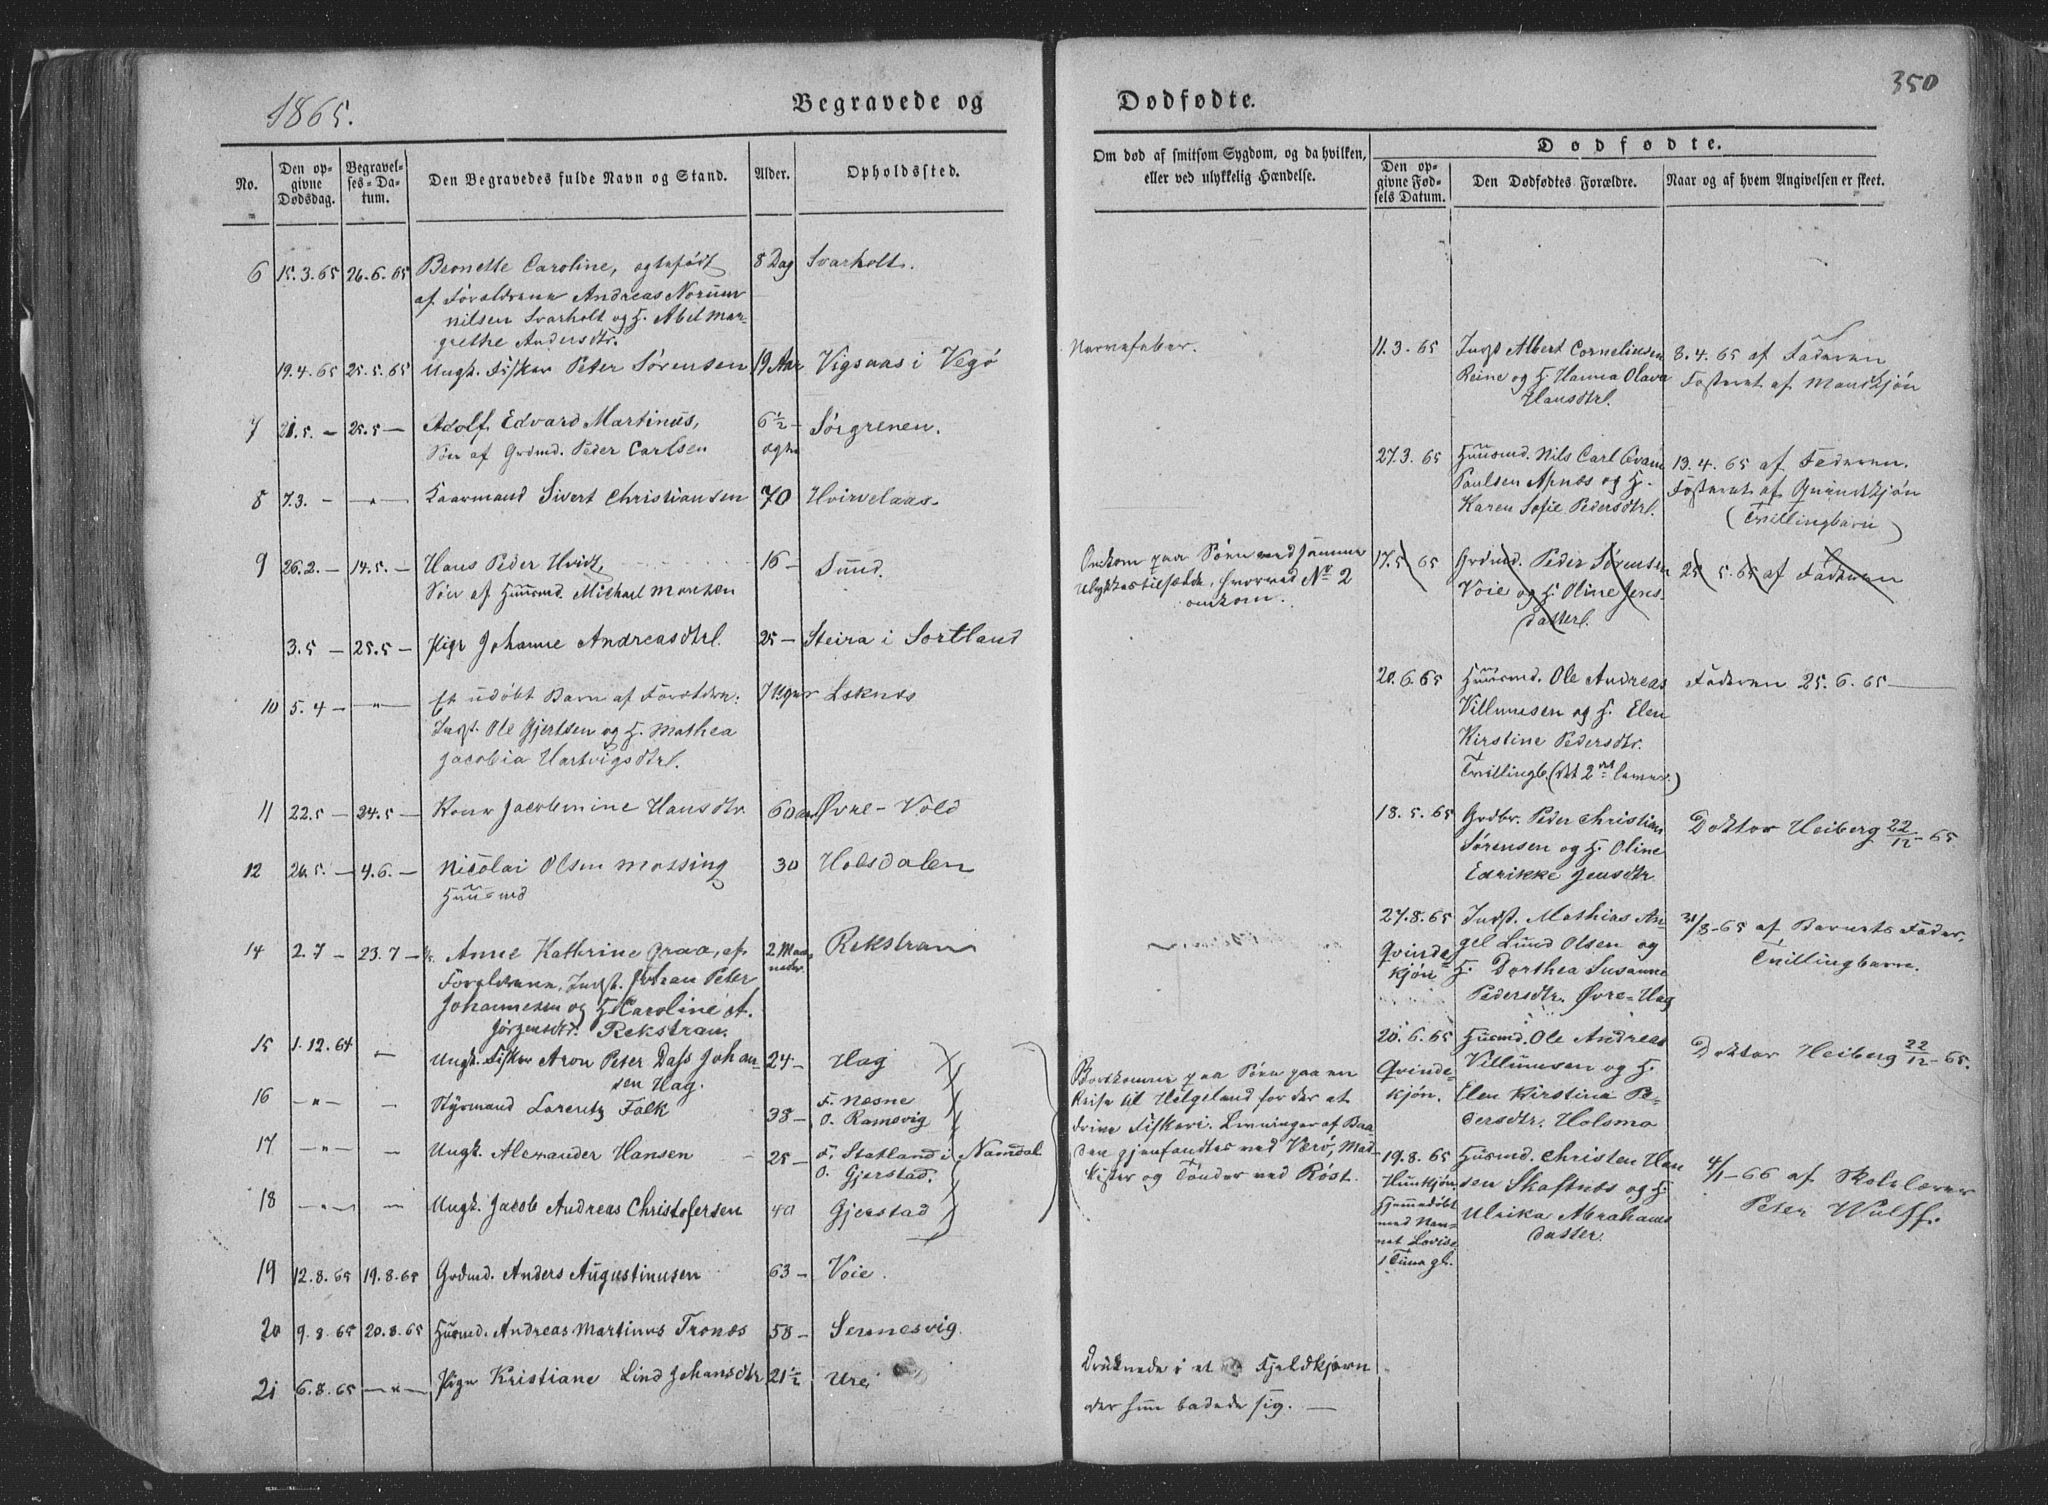 1865.
Begravede og
Dødfødte.
350
No.
Den opgivne Dødsdag.
Begravelses-Datum.
Den Begravedes fulde Navn og Stand.
Alder.
Opholdssted.
Om død af smitsom Sygdom, og da hvilken, eller ved ulykkelig Hændelse.
Dødfødte.
Den opgivne Fødsels Datum.
Den Dødfødtes Forældre.
Naar og af hvem Angivelsen er skeet.
6 15.3.65 26.6.65 Caroline, ægtefødt 8 Dag Svarholt.
af Forældrene Andreas Norum
nilsen Svarholt og H. Abel Mar-
grethe Andersdtr.
19.4.65 25.5.65 Ungk. Fisker Peter Sørensen 19 Aar Vigsaas i Vegø
7 21.5. — 25.5 — Adolf Edvard Martinus, 6½ — Sørgrenen.
Søn af Grdmd. Peder Carlsen ægte
8 7.3. — — " — Kaarmand Sivert Christiansen 70 Hvirvelaas.
9 26.2. — 14.5. — Hans Peder Hvidt, 16 — Sund.
Søn af Huusmd. Michael
3.5 — 25.5 — Pige Johanne Andreasdtr. 25 — Steira i Sortland
10 5.4 — — " — Et udøbt Barn af Forældre: 7 Uger Leknes
Indst. Ole Gjertsen og H. Mathea
Jacobia Hartvigsdtr.
11 22.5 — 24.5 — Kone Jacobmine Hansdtr. 60 aar Øvre-Vold
12 26.5. — 4.6. — Nicolai Olsen Messing 30 Holsdalen
Huusmd
14 2.7 — 23.7 — Anne Kathrine Graa, af 2 Maaneder Rekstran
Forældrene, Indst. Johan Peter
Johannesen og H. Karoline
Jørgensdtr. Rekstran.
15 1.12.64 — Ungk. Fisker Aron Peter Dass Johan- 24 — Hag
sen Hag.
16 — " — — Styrmand Lorentz Falk 38 — F. Næsne
O. Ramsvig
17 — " — — Ungk. Alexander Hansen 25 — F. Statland i Namdal
O. Gjerstad.
18 — " — — Ungk. Jacob Andreas Christofersen 40 Gjerstad
19 12.8.65 19.8.65 Grdmd. Anders Augustinusen 63 — Voie.
20 9.8.65 20.8.65 Husmd. Andreas Martinus Tronæs 58 — Sennesvig.
21 6.8.65 — " — Pige Kristiane Lind Johansdtr 21½ Urei
Nervefeber.
Omkom paa Søen ved samme
Ulykkestilfælde, hvorved No 2
omkom.
Bortkomne paa Søen paa en
Reise til Helgeland for der at
drive Fiskeri. Levninger af Baa-
den gjenfandtes ved Værø, Mad-
kister og Tønder ved Røst.
Druknede i et Fjeldkjern
der hun badede sig. —
11.3.65 Indst Albert Corneliusen 8.4.65 af Faderen
Reine og H. Hanna Olava Fosteret af Mandkjøn
Hansdtr.
27.3.65 Huusmd. Nils Carl Evan 13.4.65 af Faderen.
Paulsen Apnæs og H. Fosteret af Quindekjøn
Karen Sofie Pedersdtr. (Tvillingbarn)
17.5.65 Grdmd. Peder Sørensen 25.5.65 af Faderen
Voie og H. Oline Jens-
datter.
20.6.65 Huusmd. Ole Andreas Faderen 25.6.65 —
Villumsen og H. Elen
Kirstine Pedersdtr.
Tvillingb. (det 2det lever.)
18.5.65 Grdbr. Peder Christian Doktor Heiberg 22/12 - 65.
Sørensen og H. Oline
Edrikke Jensdtr
27.8.65 Indst. Mathias An- 31/8-65 af Barnets Fader,
Qvinde- gel Lund Olsen og Tvillingbarn.
kjøn H. Dorthea Susanne
Pedersdtr. Øvre-Hag
20.6.65 Husmd. Ole Andreas Doktor Heiberg 22/12 - 65.
Qvinde- Villumsen og H.
kjøn. Elen Kirstina Pe-
dersdtr. Holsmo
19.8.65 Husmd. Christen Han 4/1-66 af Skolelærer
Hunkjøn. sen Skaftnæs og H. Peter Wulff.
Hjemmedøbt Ulrika Abrahams
med Nav- datter.
net Lovise.
1 Time gl.